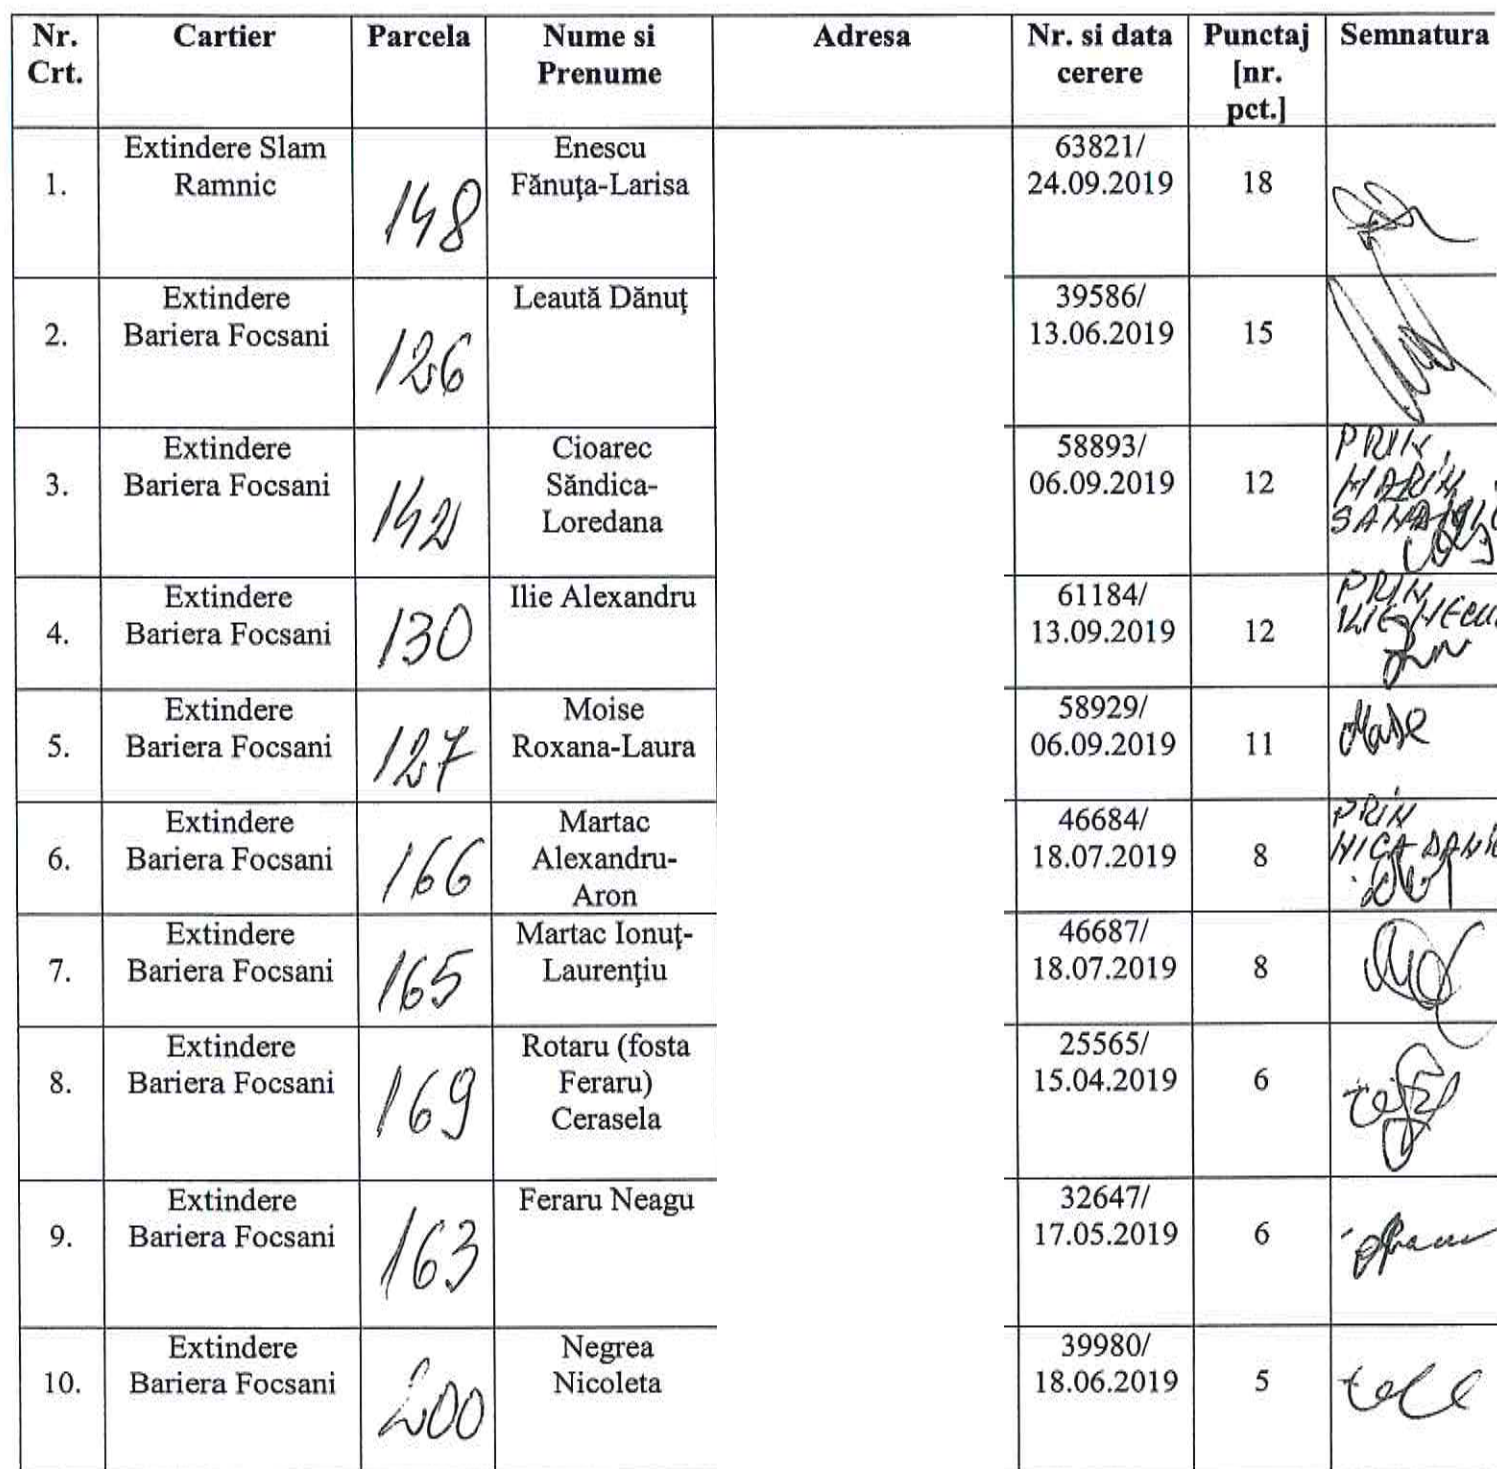 Nr. Crt. Cartier Parcela Nume si Prenume Adresa Nr. si data cerere Punctaj [nr. pct.] Semnatura
1. Extindere Slam Ramnic 148 Enescu Fănuţa-Larisa 63821/ 24.09.2019 18
2. Extindere Bariera Focsani 126 Leaută Dănuţ 39586/ 13.06.2019 15
3. Extindere Bariera Focsani 142 Cioarec Săndica-Loredana 58893/ 06.09.2019 12 PRIN
4. Extindere Bariera Focsani 130 Ilie Alexandru 61184/ 13.09.2019 12 PRIN ILIE
5. Extindere Bariera Focsani 127 Moise Roxana-Laura 58929/ 06.09.2019 11
6. Extindere Bariera Focsani 166 Martac Alexandru-Aron 46684/ 18.07.2019 8 PRIN
7. Extindere Bariera Focsani 165 Martac Ionuţ-Laurenţiu 46687/ 18.07.2019 8
8. Extindere Bariera Focsani 169 Rotaru (fosta Feraru) Cerasela 25565/ 15.04.2019 6
9. Extindere Bariera Focsani 163 Feraru Neagu 32647/ 17.05.2019 6
10. Extindere Bariera Focsani 200 Negrea Nicoleta 39980/ 18.06.2019 5